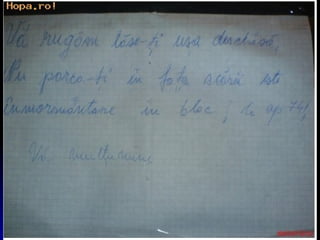 Hopa.ro!
Vă rugăm lăsa-ți ușa deschisă,
Nu parca-ți în fața scării este
înmormântare în bloc la ap 74,
Vă mulțumim